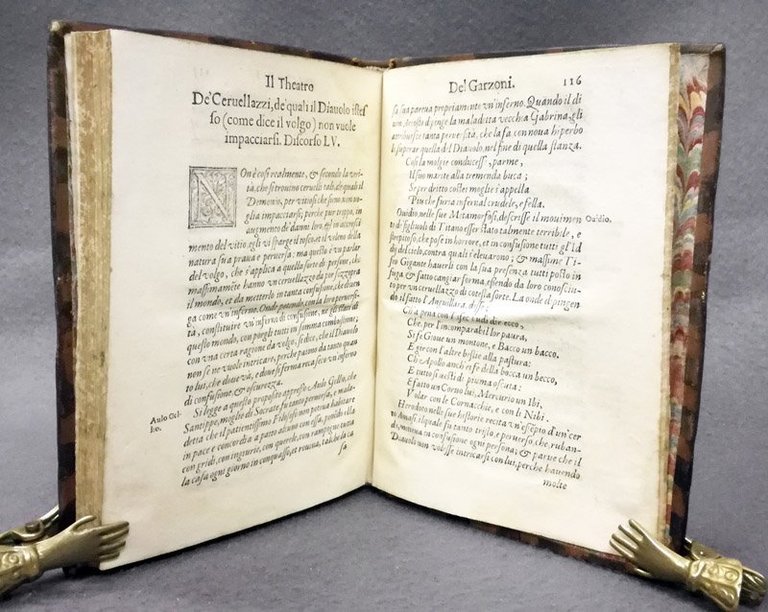 Il Theatro
De'Ceruellazzi, de'quali il Diauolo istes
so (come dice il volgo) non vuole
impacciarsi. Discorso LV.
NOn è cosi realmente, & secondo la veri-
tà, che si trouino ceruelli tali, de quali il
Demonio, per vitiosi che sono non
voglia impacciarsi; perche pur troppo, in
augmento de' danni loro,
mento del vitio, gli vi sparge il tosco, et il veleno della
natura sua praua e peruersa: ma questo è vn parlar
del volgo, che s'applica a quella sorte di persone, che
massimamente hãno vn ceruellazzo da far sezzopra
il mondo, et da metterlo in tanta confusione, che diuen
ga come vn'inferno. Onde potendo, con la lor peruersi-
tà, constituire vn'inferno di confusione, ne gli stati di
questo mondo, con porgli tutti in somma combustione;
con vna certa ragione da volgo, si dice, che il Diauolo
non se ne vuole intricare, perche patono da tanto quan
to lui, che doue và, e doue si ferma reca seco vn'inferno
di confusione, & oscurezza.
Aulo Gel-
lio.
Si legge a questo proposito appresso Aulo Gellio, che
Santippe, moglie di Socrate fu tanto peruersa, e mala-
detta che il patientissimo Filosofo non poteua habitare
in pace e concordia a patto alcuno con essa, ponedo ella
con gridi, con ingiurie, con querele, con rampogne tutta
la casa ogni giorno in conquasso, et rouina, talche la ca
sa
De'l Garzoni. 116
sa sua pareua propriamente vn'inferno. Quando il di
uino, Ariosto dipinge la maladitta vecchia Gabrina, gli
attribuisce tanta peruersità, che la fa con noua hiperbo
le superar quella del Diauolo, nel fine di quella stanza.
Cosi la moglie conducess', parme,
Il suo marito alla tremenda buca;
Se per dritto costei moglie s'appella
Piu che furia infernal crudele, e fella.
Ouidio, nelle sue Metamorfosi, descriue il mouimen
Ouidio.
to de' figliuoli di Titano esser stato talmente terribile, e
strepitoso, che pose in horrore, et in confusione tutti gl'Id
dij del cielo, contra quali s'eleuarono; & massime Ti-
feo Gigante hauerli con la sua presenza tutti posto in
fuga & fatto cangiar forma, essendo da loro conosciu-
to per vn ceruellazzo di cotesta sorte. La onde dipingen
do il fatto l'Anguillara, disse;
Che per l'incomparabil lor paura,
Si fe Gioue vn montone, e Bacco vn becco.
E gire con l'altre bestie alla pastura:
Ch'Apollo anch'esso fe della bocca vn becco,
E tutto si vestì di piuma oscura;
E fatto vn Coruo lui, Mercurio vn Ibi.
Volar con le Cornacchie, e con li Nibi.
Herodoto nelle sue historie recita vn'esẽpio d'vn cer
to Amasi, ilquale fu tanto tristo, e peruerso, che, ruban-
do, metteua in confusione ogni persona; & parue che il
Diauolo non volesse intricarsi con lui, perche hauendo
molte